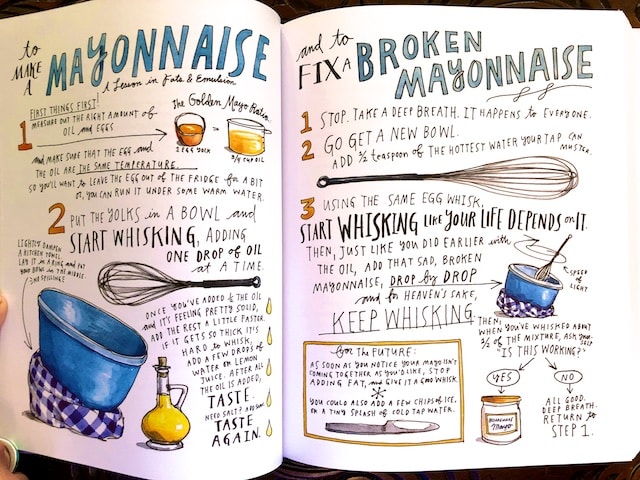 to
MAKE
A
MAYONNAISE
A Lesson in Fats & Emulsion
FIRST THINGS FIRST!
1
MEASURE OUT THE RIGHT AMOUNT OF
OIL and EGGS
The Golden Mayo Ratio
1 EGG YOLK
3/4 CUP OIL
and MAKE SURE THAT THE EGG and
THE OIL ARE THE SAME TEMPERATURE.
SO YOU'LL WANT to LEAVE THE EGG OUT OF THE FRIDGE for A BIT
or, YOU CAN RUN IT UNDER SOME WARM WATER.
2
PUT THE YOLKS in A BOWL and
START WHISKING, ADDING
ONE DROP of OIL
at A TIME.
LIGHTLY DAMPEN
A KITCHEN TOWEL.
LAY IT in A RING and PUT
YOUR BOWL in THE MIDDLE.
ONCE YOU'VE ADDED 1/2 THE OIL
and IT'S FEELING PRETTY SOLID,
ADD THE REST A LITTLE FASTER.
IF IT GETS SO THICK IT'S
HARD to WHISK,
ADD A FEW DROPS of
WATER OR LEMON
JUICE. AFTER ALL
THE OIL IS ADDED,
TASTE.
NEED SALT?
TASTE
AGAIN.
and to
FIX A
BROKEN
MAYONNAISE
1 STOP. TAKE A DEEP BREATH. IT HAPPENS to EVERYONE.
2 GO GET A NEW BOWL.
ADD 1/2 TEASPOON of THE HOTTEST WATER YOUR TAP CAN
MUSTER.
3 USING THE SAME EGG WHISK,
START WHISKING LIKE YOUR LIFE DEPENDS on IT.
THEN, JUST LIKE YOU DID EARLIER with
THE OIL, ADD THAT SAD, BROKEN
MAYONNAISE, DROP by DROP
and for HEAVEN'S SAKE,
KEEP WHISKING.
SPEED
OF
LIGHT
for THE FUTURE:
AS SOON AS YOU NOTICE YOUR MAYO ISN'T
COMING TOGETHER AS YOU'D LIKE, STOP
ADDING FAT, and GIVE IT A GOOD WHISK.
YOU COULD ALSO ADD A FEW CHIPS of ICE,
OR A TINY SPLASH of COLD TAP WATER.
THEN,
WHEN YOU'VE WHISKED ABOUT
of THE MIXTURE, ASK
"IS THIS WORKING?"
YES
NO
HOMEMADE
Mayo
ALL GOOD.
DEEP BREATH.
RETURN to
STEP 1.